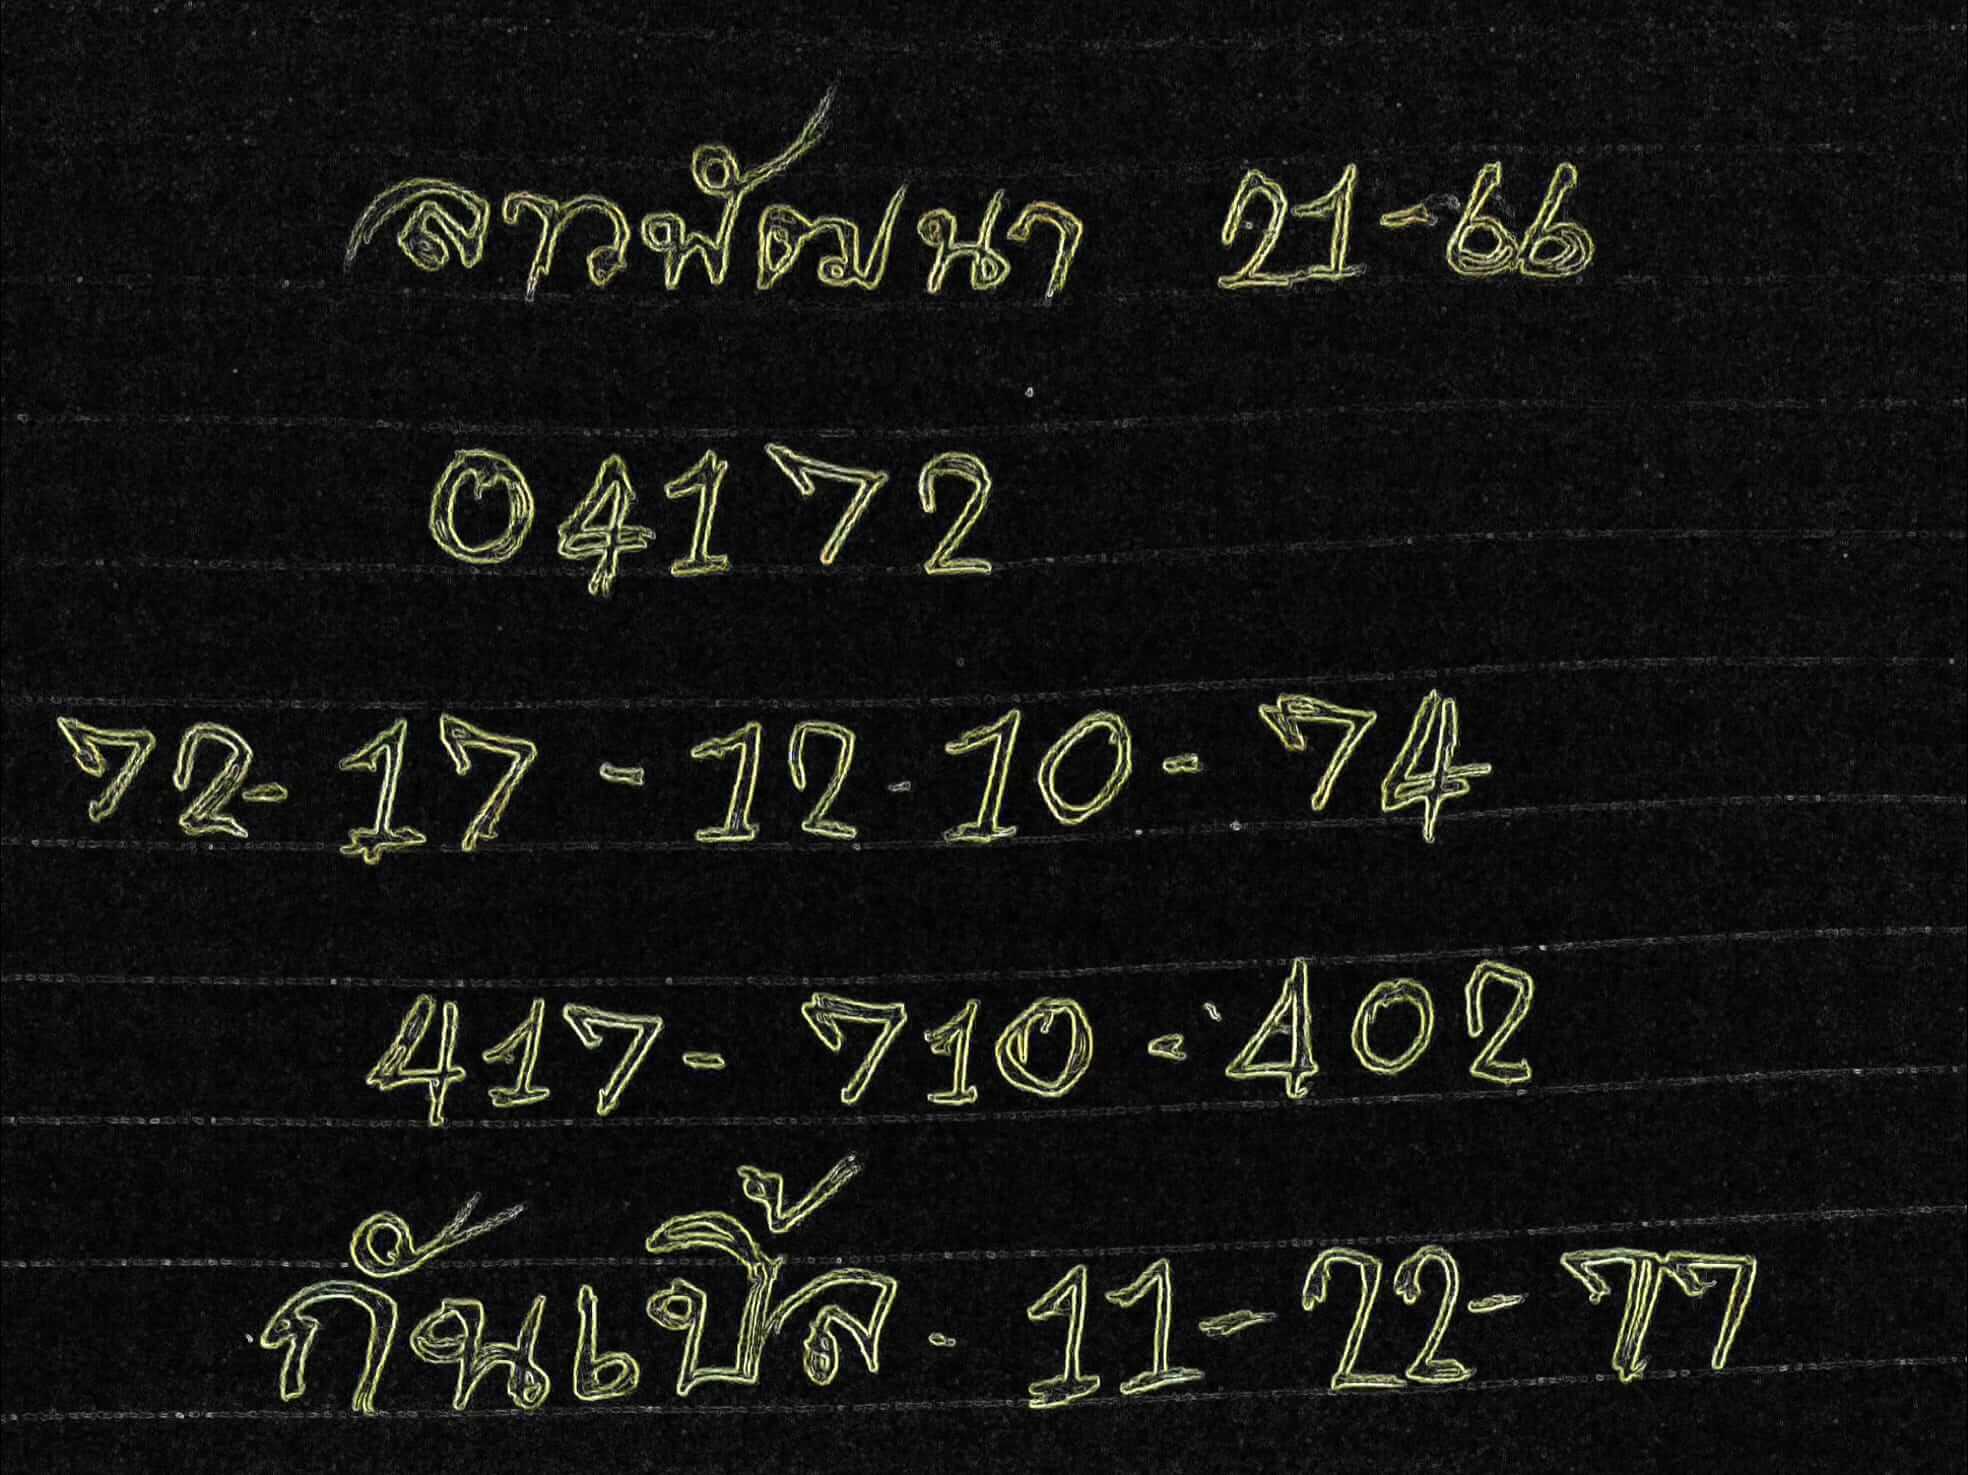 ลาวพัฒนา 21-66
04172
72-17-12-10-74
417-710-402
กันเบิ้ล. 11-22-77